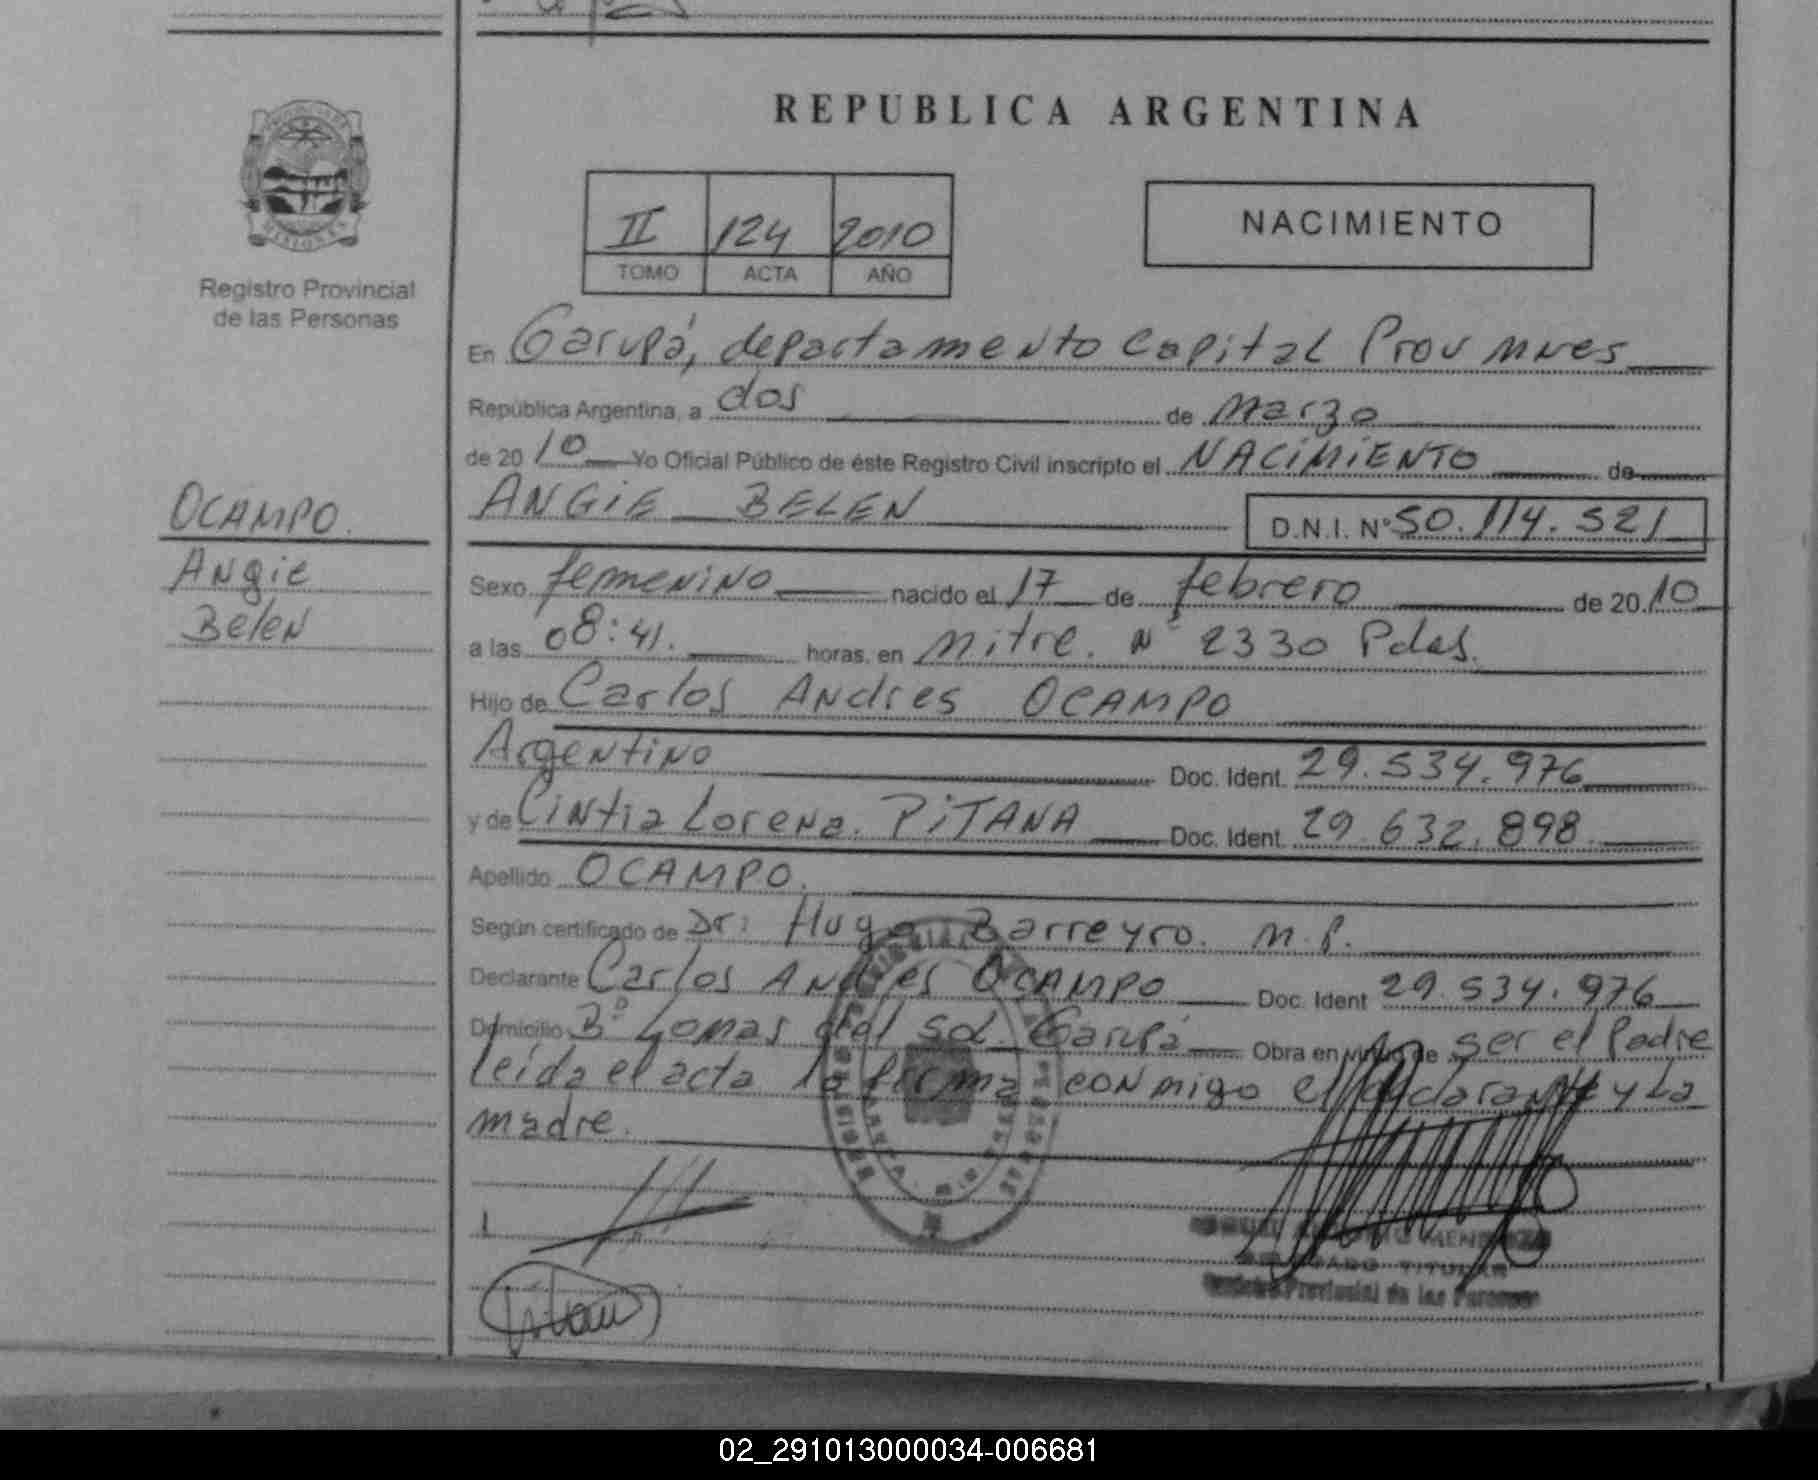 REPUBLICA ARGENTINA
II 124 2010
TOMO ACTA AÑO
NACIMIENTO
MISIONES
Registro Provincial
de las Personas
En Garupá, departamento Capital Prov Mnes
República Argentina, a dos de Marzo
de 2010 Yo Oficial Público de éste Registro Civil inscripto el NACIMIENTO de
ANGIE BELEN D.N.I. Nº 50.114.521
OCAMPO.
Angie
Belen
Sexo femenino nacido el 17 de febrero de 2010
a las 08:41. horas, en Mitre. Nº 2330 Pdas.
Hijo de Carlos Andres OCAMPO
Argentino Doc. Ident. 29.534.976
y de Cintia Lorena. PITANA Doc. Ident. 29.632.898.
Apellido OCAMPO.
Según certificado de Dr: Hugo Barreyro. M.P.
Declarante Carlos Andres OCAMPO Doc. Ident 29.534.976
Domicilio Bº Lomas del Sol. Garupá Obra en virtud de ser el Padre
leída el acta la firma conmigo el declarante y La
madre.
MENDOZA
TITULAR
Registro Provincial de las Personas
02_291013000034-006681